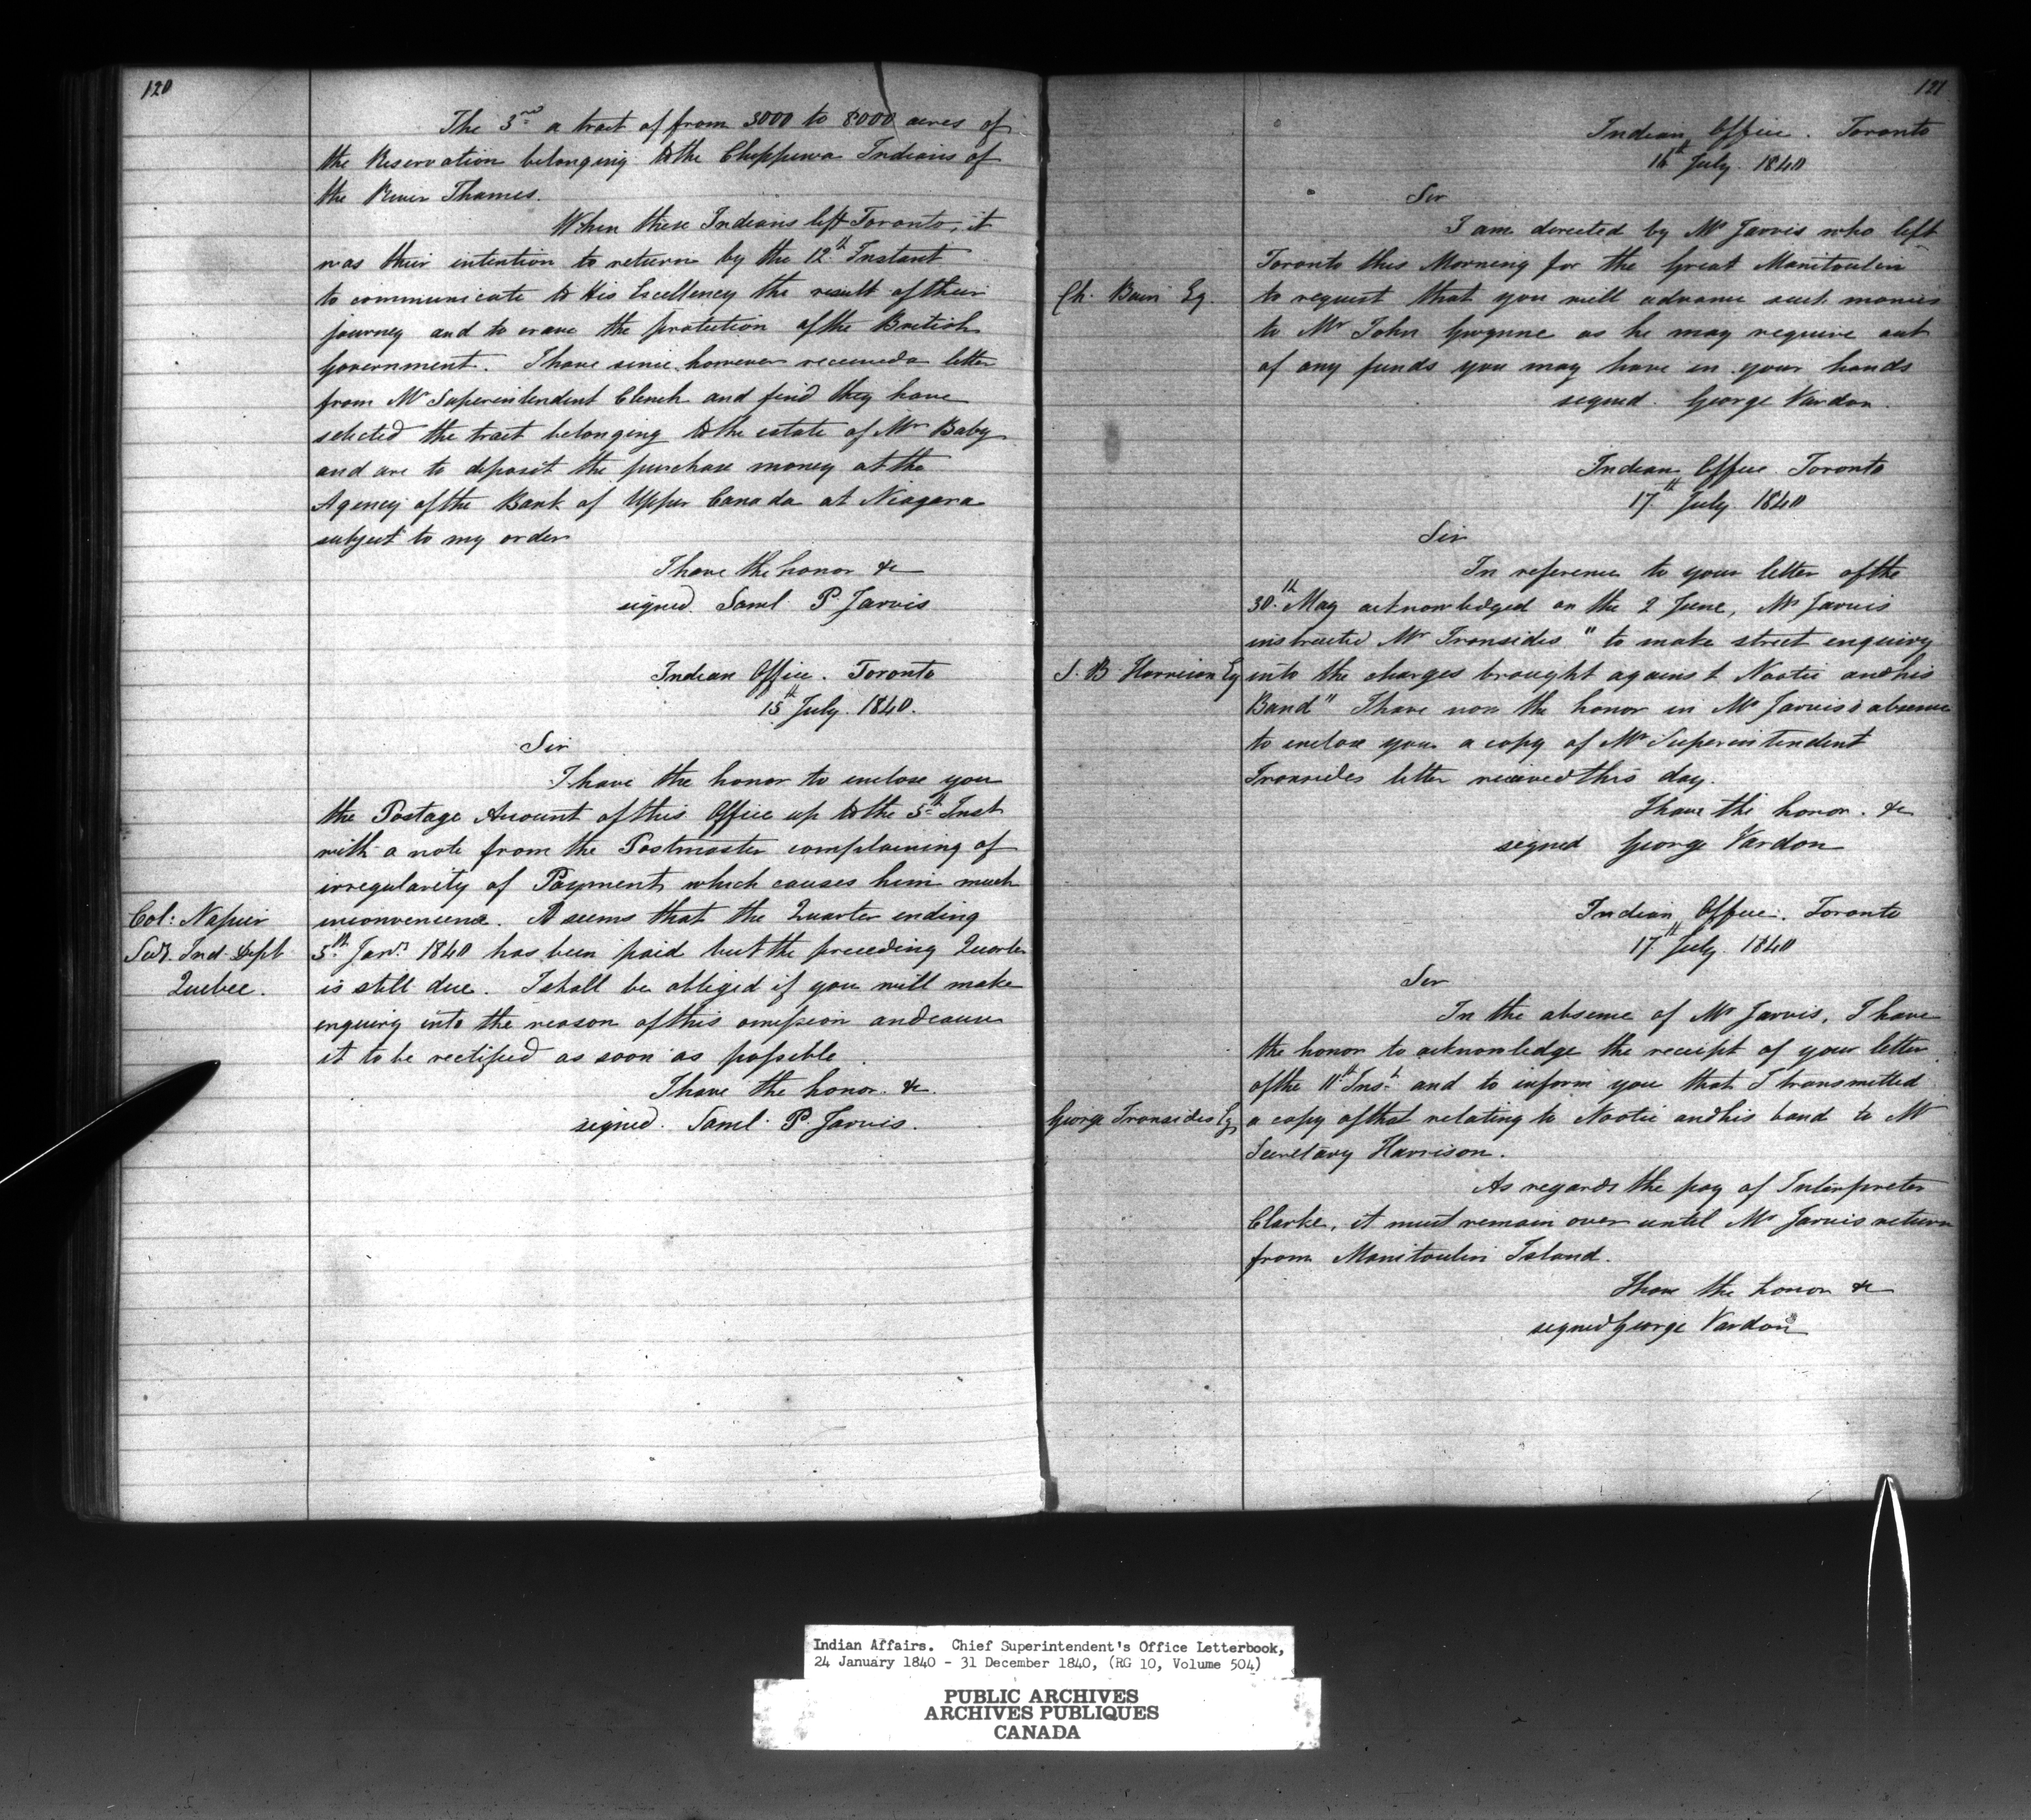 120
The 3rd a tract of from 3000 to 8000 acres of
the Reservation belonging to the Chippewa Indians of
the River Thames.
When these Indians left Toronto, it
was their intention to return by the 12th Instant
to communicate to His Excellency the result of their
journey and to crave the protection of the British
Government. I have since however received a letter
from Mr Superintendent Clench and find they have
selected the tract belonging to the estate of Mr Baby
and are to deposit the purchase money at the
Agency of the Bank of Upper Canada at Niagara
subject to my order
I have the honor &c
signed Saml. P Jarvis
Indian Office. Toronto
15th July. 1840.
Sir
I have the honor to enclose you
the Postage Account of this Office up to the 5th Inst
with a note from the Postmaster complaining of
irregularity of Payment which causes him much
Col: Napier
Secy. Ind. Dept
Quebec.
inconvenience. It seems that the Quarter ending
5th Jany. 1840 has been paid but the preceding Quarter
is still due. I shall be obliged if you will make
enquiry into the reason of this omission and cause
it to be rectified as soon as possible.
I have the honor. &c
signed. Saml. P. Jarvis.
121
Indian Office. Toronto
16th July. 1840
Sir
I am directed by Mr Jarvis who left
Toronto this Morning for the Great Manitoulin
Ch. Esq.
to request that you will advance such monies
to Mr John Gwynne as he may require out
of any funds you may have in your hands
signed. George Vardon.
Indian Office Toronto
17th July 1840
Sir
In reference to your letter of the
30th May acknowledged on the 2 June, Mr Jarvis
instructed Mr Ironsides "to make strict enquiry
S. B Harrison Esq
into the charges brought against Nootie and his
Band" I have now the honor in Mr Jarvis's absence
to enclose you a copy of Mr Superintendent
Ironsides letter received this day.
I have the honor. &c
signed George Vardon
Indian Office. Toronto
17th July. 1840
Sir
In the absence of Mr Jarvis, I have
the honor to acknowledge the receipt of your letter
of the 11th Inst. and to inform you that I transmitted
George Ironsides Esq
a copy of that relating to Nootie and his band to Mr
Secretary Harrison.
As regards the pay of Interpreter
Clarke, it must remain over until Mr Jarvis return
from Manitoulin Island.
I have the honor &c
signed George Vardon
Indian Affairs. Chief Superintendent's Office Letterbook,
24 January 1840 - 31 December 1840, (RG 10, Volume 504)
PUBLIC ARCHIVES
ARCHIVES PUBLIQUES
CANADA